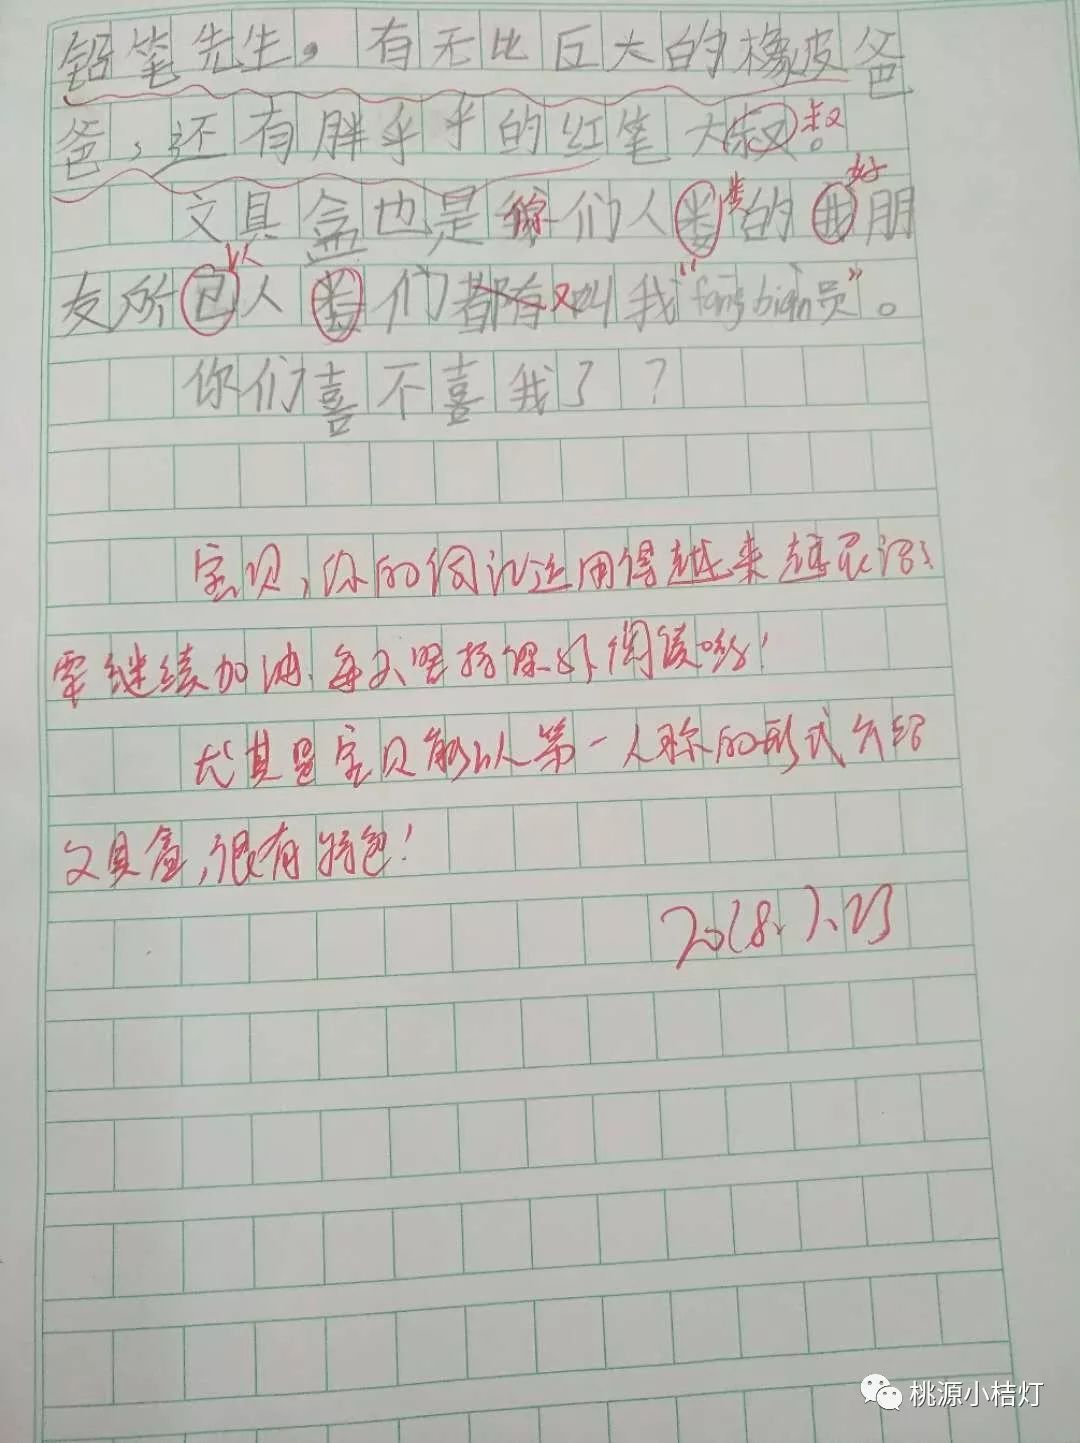 铅笔先生，有无比巨大的橡皮爸
爸，还有胖乎乎的红笔大叔叔。
文具盒也是你们人类类的好朋
友所以人类们都有又叫我“fang bian员”。
你们喜不喜我了？
宝贝，你的词记运用得越来越灵活！
要继续加油，每天坚持课外阅读哟！
尤其是宝贝能以第一人称的形式介绍
文具盒，很有特色！
2018.7.23
桃源小桔灯